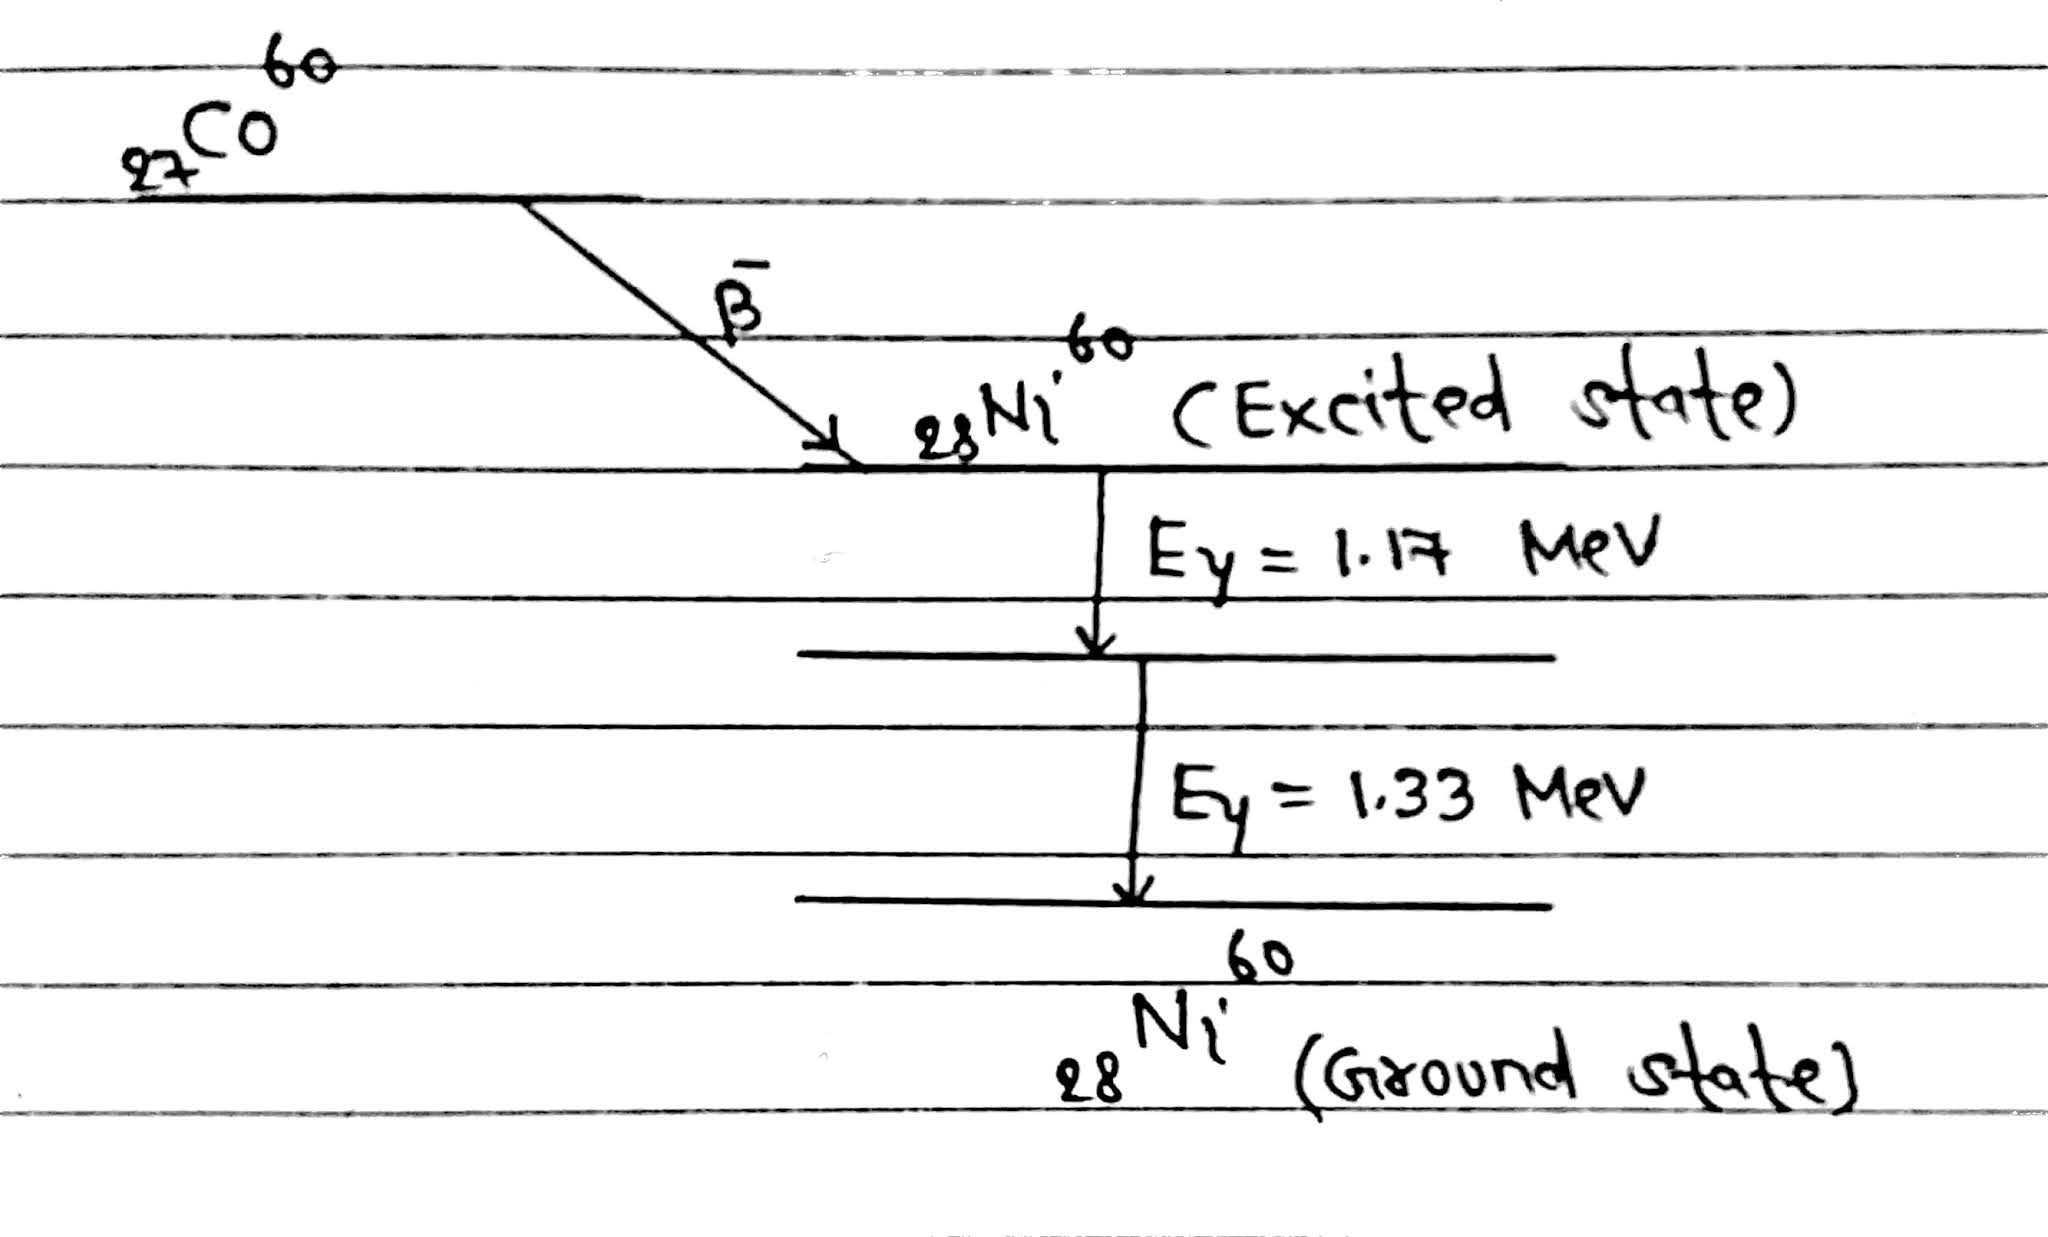 ₂₇Co⁶⁰
β⁻
₂₈Ni⁶⁰ (Excited state)
Eγ = 1.17 MeV
Eγ = 1.33 MeV
₂₈Ni⁶⁰ (Ground state)